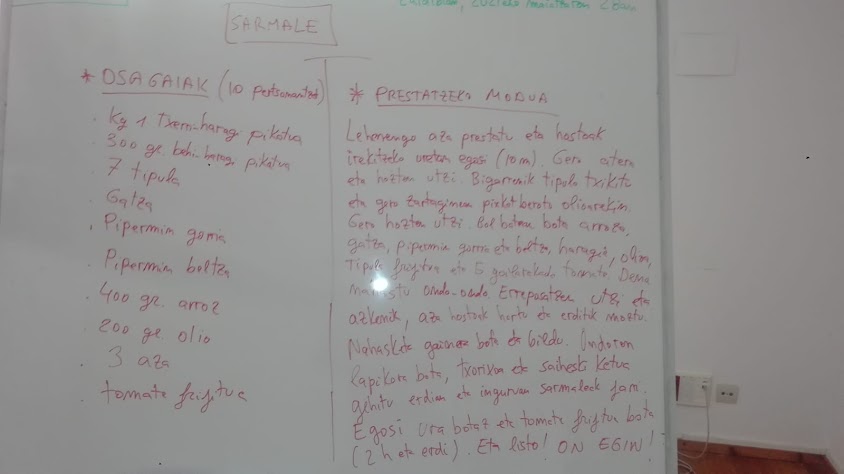 SARMALE
* OSAGAIAK (10 pertsonantzat)
. Kg 1 Txerri-haragi pikatua
. 300 gr. behi-haragi pikatua
. 7 tipula
. Gatza
. Pipermin gorria
. Pipermin beltza
. 400 gr. arroz
. 200 gr. olio
. 3 aza
. tomate frijitua
* PRESTATZEKO MODUA
Lehenengo aza prestatu eta hostoak
irekitzeko uretan egosi (10m). Gero atera
eta hozten utzi. Bigarrenik tipula txikitu
eta gero zartaginean pixkat berotu olioarekin.
Gero hozten utzi. Bol batean bota arroza,
gatza, pipermin gorria eta beltza, haragia, olioa,
tipula frijitua eta 5 goilarakada tomate. Dena
nahastu ondo-ondo. Erreposatzen utzi eta
azkenik, aza hostoak hartu eta erditik moztu.
Nahasketa gainera bota eta bildu. Ondoren
lapikora bota, txorixoa eta saiheski ketua
gehitu erdian eta inguruan sarmaleak jarri.
Egosi ura botaz eta tomate frijitua bota
(2 h eta erdi). Eta listo! ON EGIN!